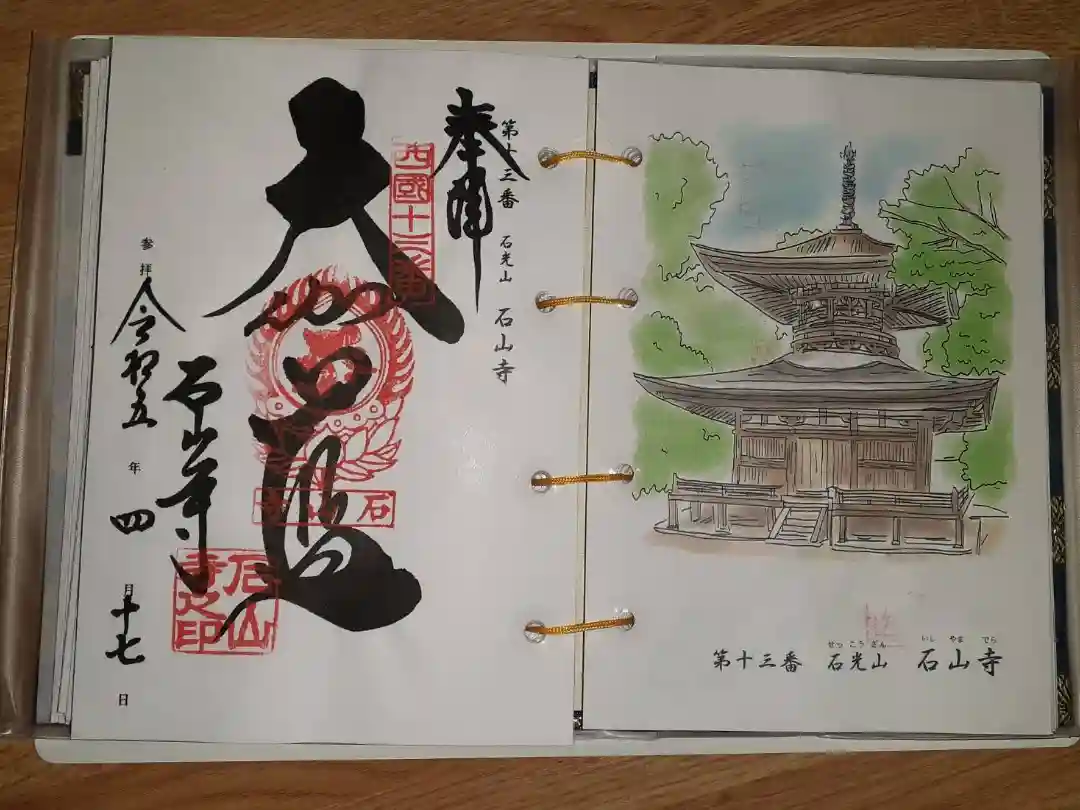 第十三番 石光山 石山寺
奉拝
西國十三番
大伽藍
石山寺
石山寺
石山寺之印
参拝 令和五年四月十七日
せっこうざん いしやまでら
第十三番 石光山 石山寺